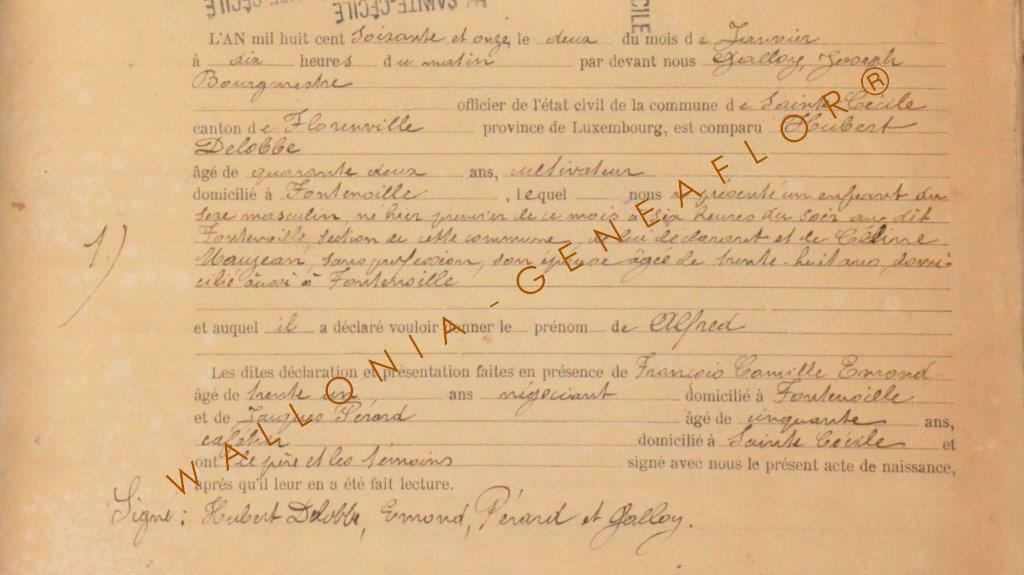 SAINTE-CÉCILE
SAINTE-CÉCILE
L'AN mil huit cent soixante et onze, le deux du mois de Janvier
à dix heures du matin par devant nous Galloy, Joseph
Bourgmestre
officier de l'état civil de la commune de Sainte Cécile
canton de Florenville province de Luxembourg, est comparu Hubert
Delobbe
âgé de quarante deux ans, cultivateur
domicilié à Fontenoille, lequel nous a présenté un enfeant du
sexe masculin, né hier premier de ce mois à six heures du soir au dit
1) Fontenoille, section de cette commune, de lui déclarant et de Céline
Maujean, sans profession, son épouse âgée de trente-huit ans, domi-
cilié aussi à Fontenoille
et auquel il a déclaré vouloir donner le prénom de Alfred
Les dites déclaration et présentation faites en présence de François Camille Emond
âgé de trente un ans négociant domicilié à Fontenoille
et de Jacques Pérard âgé de cinquante ans,
cafetier domicilié à Sainte Cécile et
ont le père et les témoins signé avec nous le présent acte de naissance,
après qu'il leur en a été fait lecture.
Signé : Hubert Delobbe, Emond, Pérard et Galloy.
WALLONIA - GENEAFLOR ®